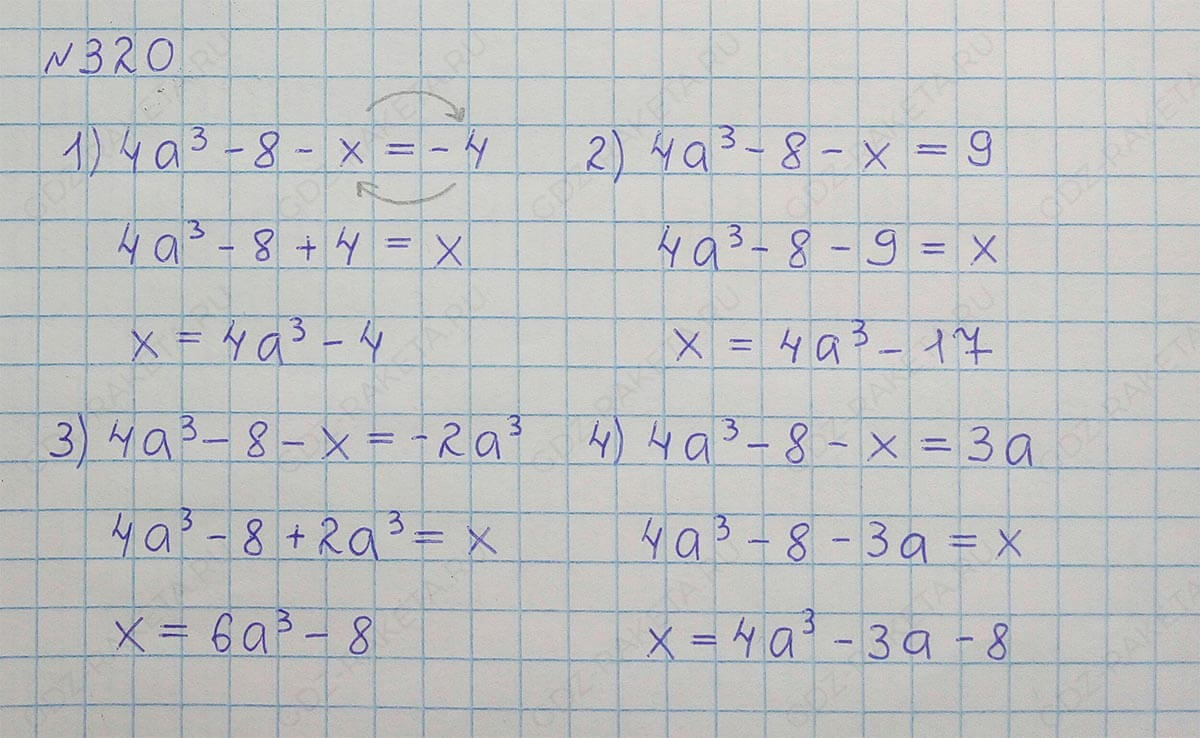 №320
1) 4a³ - 8 - x = -4
4a³ - 8 + 4 = x
x = 4a³ - 4
2) 4a³ - 8 - x = 9
4a³ - 8 - 9 = x
x = 4a³ - 17
3) 4a³ - 8 - x = -2a³
4a³ - 8 + 2a³ = x
x = 6a³ - 8
4) 4a³ - 8 - x = 3a
4a³ - 8 - 3a = x
x = 4a³ - 3a - 8
GDZ-RAKETA.RU